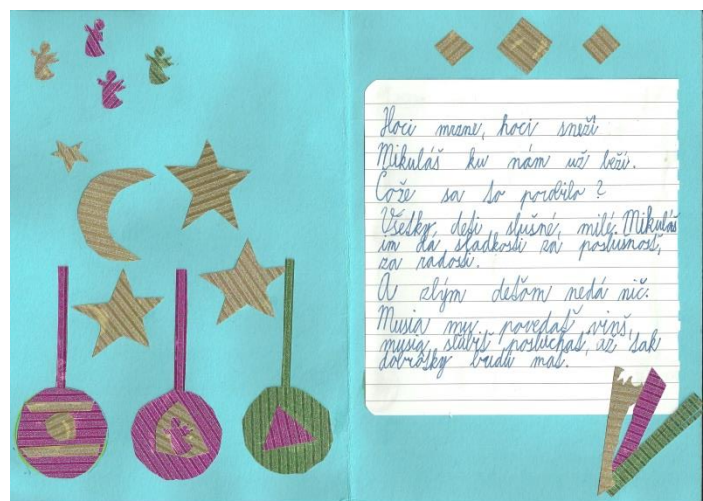 Hoci mrzne, hoci sneží
Mikuláš ku nám už beží.
Čože sa to porobilo?
Všetky deti slušné, milé. Mikuláš
im dá sladkosti za poslusnosť,
za radosti.
A zlým deťom nedá nič.
Musia mu povedať vinš,
musia slúbiť poslúchať, až tak
dobrôtky budú mať.